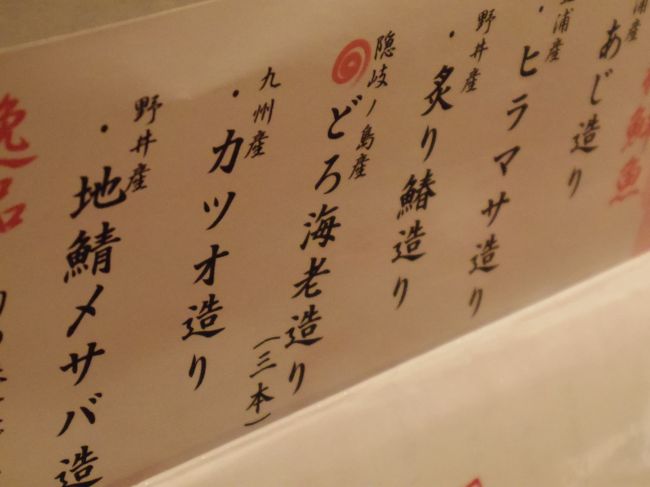 鮮魚
浦産
あじ造り
浦産
・ヒラマサ造り
野井産
・炙り鰆造り
隠岐ノ島産
どろ海老造り
(三本)
九州産
・カツオ造り
野井産
・地鯖〆サバ造
逸品